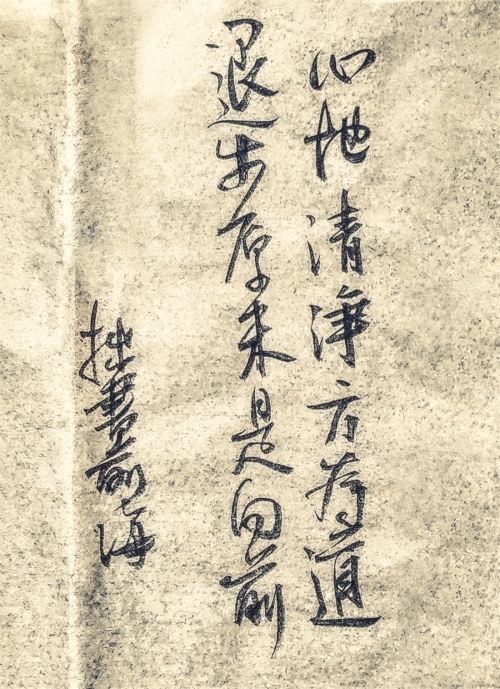 心地清淨方為道
退步原來是向前
拙書前海